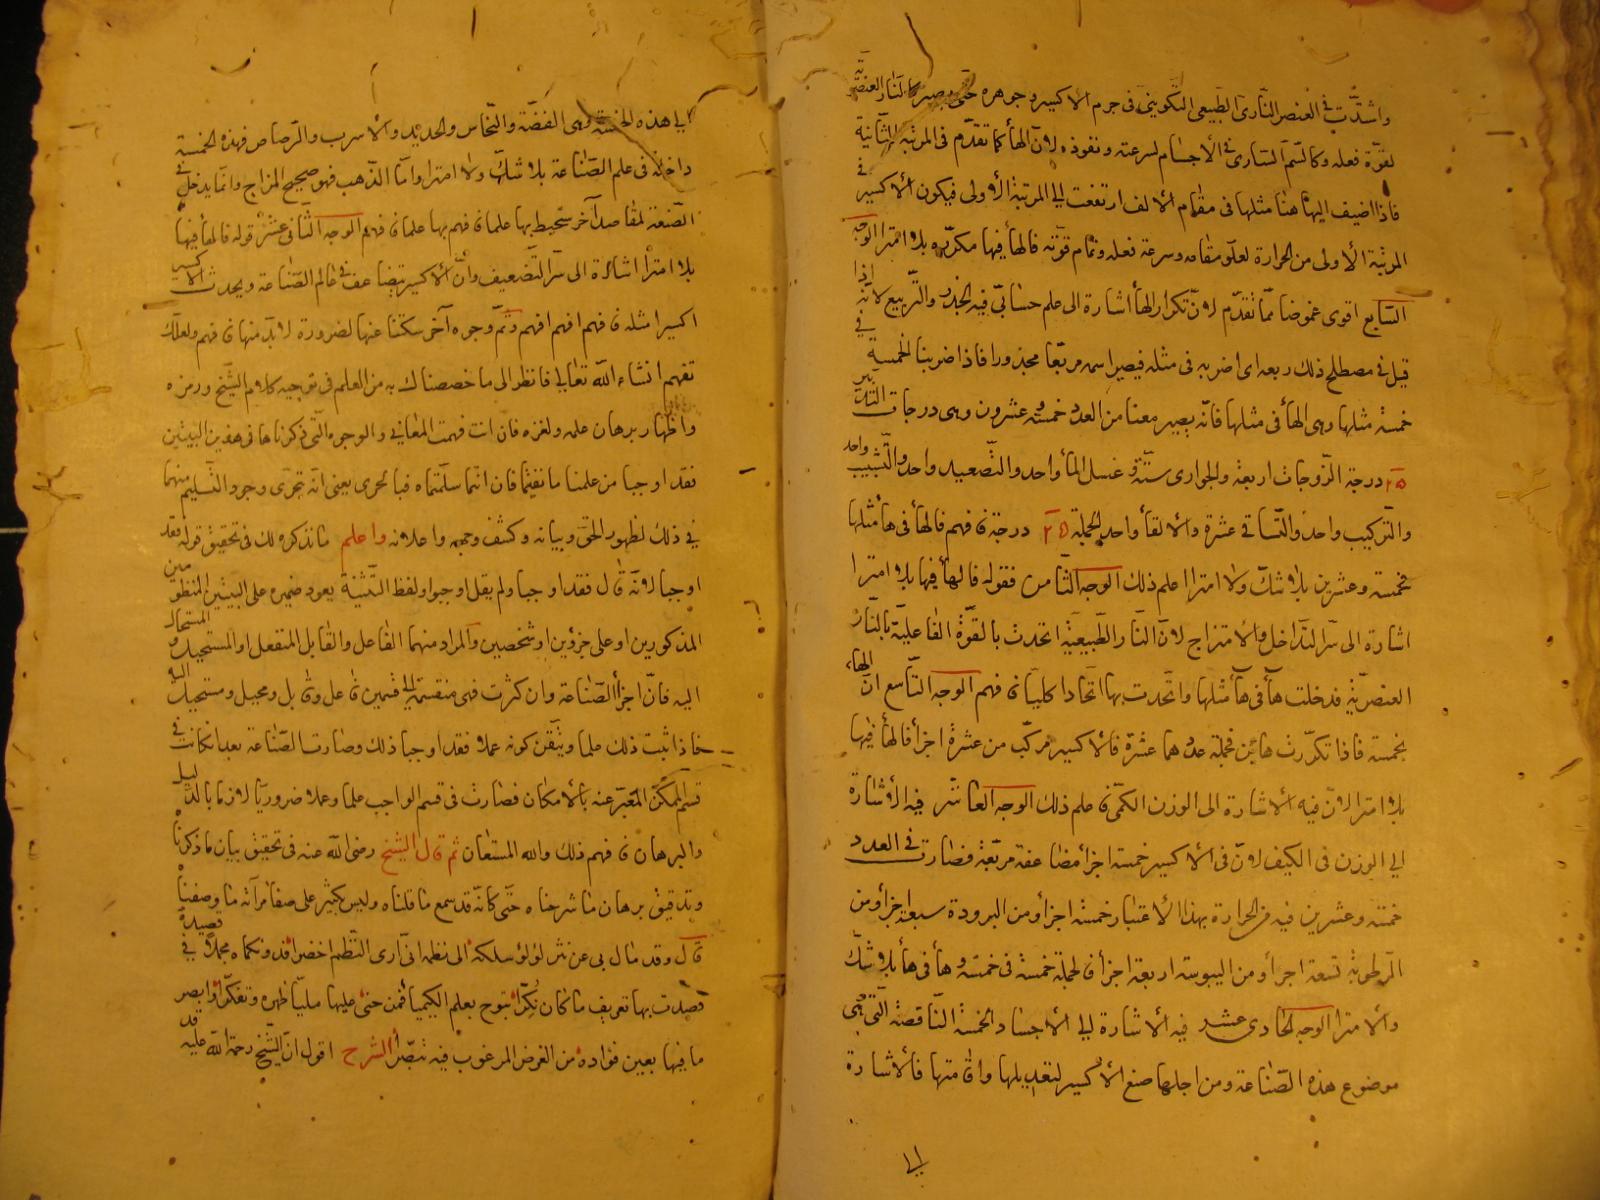 واشتدّت في العنصر النّاري الطبيعي التكويني في جرم الاكسير وجوهره حتّى يصير كالنار العنصريّة
لقوّة فعله وكالسّم الساري في الأجسام لسرعته ونفوذه لانّ الهأ كما تقدّم في المرتبة الثّانية
فاذا اضيف اليها هنا مثلها في مقام الألف ارتفعت الي المرتبة الأولى فيكون الأكسير في
المرتبة الأولى من الحرارة لعلوّ مقامه وسرعة فعله وتمام قوّته فالهأ فيها مكرّره بلا امترا الوجه
السّابع اقوى غموضا ممّا تقدّم لانّ تكرار الهأ اشارة الى علم حسابيّ فيه الجذر والتّربيع لانّه اذا
قيل في مصطلح ذلك ربعه اى اضربه في مثله فيصير اسمه مربّعا مجذورا فاذا ضربنا الخمسة في
خمسة مثلها وهى الهأ في مثلها فانّه يصير معنا من العدد خمسة وعشرون وهى درجات التدبير
٢٥ درجة الزّوجات اربعة والجوارى ستّة وغسل المأ واحد والتّصعيد واحد والتّشبيب واحد
والتّركيب واحد والتّساقي عشرة والالقأ واحد الجملة ٢٥ درجة فافهم فالهأ في هأ مثلها
خمسة وعشرين بلا شكّ ولا امترا اعلم ذلك الوجه الثّامن فقوله فالهأ فيها بلا امترا
اشارة الى سرّ التّداخل والامتزاج لانّ النّار الطّبيعيّة اتحدت بالقوّة الفاعليّة بالنّار
العنصريّة فدخلت هأ في هأ مثلها واتّحدت بها اتّحادا كليّا فافهم الوجه التّاسع انّ الهاء
بخمسة فاذا تكرّرت هائين فجملة عددهما عشرة فالاكسير مركّب من عشرة اجزأ فالهأ فيها
بلا امترا لانّ فيه الاشارة الى الوزن الكمّي فاعلم ذلك الوجه العاشر فيه الاشارة
الي الوزن في الكيف لانّ في الاكسير خمسة اجزأ مضاعفة مربّعة فصارت في العدد
خمسة وعشرين فيه من الحرارة بهذا الاعتبار خمسة اجزأ ومن البرودة سبعة اجزأ ومن
الرّطوبة تسعة اجزأ ومن اليبوسة اربعة اجزأ فالجملة خمسة في خمسة وهأ في هأ بلا شكّ
والامترا الوجه الحادى عشر فيه الاشارة الي الاجساد الخمسة النّاقصة الّتي هى
موضوع هذه الصّناعة ومن اجلها صنع الاكسير لتعديلها واقامتها فالاشارة
الي هذه الخمسة وهى الفضّة والنّحاس والحديد والأسرب والرّصاص فهذه الخمسة
داخلة في علم الصّناعة بلا شكّ ولا امترا وامّا الذّهب فهو صحيح المزاج وانّما يدخل في
الصّنعة لمقاصد آخر ستحيط بها علما فافهم بها علما فافهم الوجه الثّاني عشر قوله فالهأ فيها
بلا امترا اشارة الى سرّ التّضعيف وانّ الأكسير يتضاعف في عالم الصّناعة ويحدث الاكسير
اكسيرا مثله فافهم افهم افهم وثمّ وجوه آخر سكتنا عنها لضرورة لابدّ منها فافهم ولعلّك
تفهم انشاء اللّه تعالي فانظر الى ما خصصناك به من العلم في توجيه كلام الشّيخ ورمزه
واظهار برهان علمه ولغزه فان انت فهمت المعاني والوجوه الّتي ذكرناها في هذين البيتين
فقد اوجبا من علمنا ما نفيتما فان انتما سلّمتماه فبالحرى يعنى انّه تحرّى وجود التّسليم منهما
في ذلك لظهور الحقّ وبيانه وكشف وجهه واعلانه واعلم ما نذكره لك في تحقيق قوله فقد
اوجبا لانّه قال فقد اوجبا ولم يقل اوجبوا ولفظ التّثنية يعود ضميره على البيتين المنظومين
المذكورين او على جزئين او شخصين والمراد منهما الفاعل والقابل المنفعل او المستحيل والمستحال
اليه فانّ اجزأ الصّناعة وان كثرت فهى منقسمة الي قسمين فاعل وقابل ومحيل ومستحيل اليه
فاذا ثبت ذلك علما وتيقّن كونه عملا فقد اوجبا ذلك وصارت الصّناعة بعد ان كانت في
قسم الممكن المعبّر عنه بالأمكان فصارت في قسم الواجب علما وعملا ضروريّا لازما بالدّليل
والبرهان فافهم ذلك واللّه المستعان ثم قال الشيخ رضى اللّه عنه في تحقيق بيان ما ذكرنا
وتدقيق برهان ما شرحناه حتّى كانّه قد سمع ما قلناه وليس بكثير على صفا مرآته ما وصفناه
قال وقد مال بى عن نثر لؤلؤ سلكه الى نظمه انّى ارى النّظم اخضرا فدونكماه مجملا في قصيدة
قصدت بها تعريف ما كان نُكّرا تبوح بعلم الكيميا فمن حنى عليها مليّا ظهره وتفكّرا وابصر
ما فيها بعين فؤاده من الغرض المرغوب فيه تبصّرا الشرح اقول انّ الشّيخ رحمة اللّه عليه قد